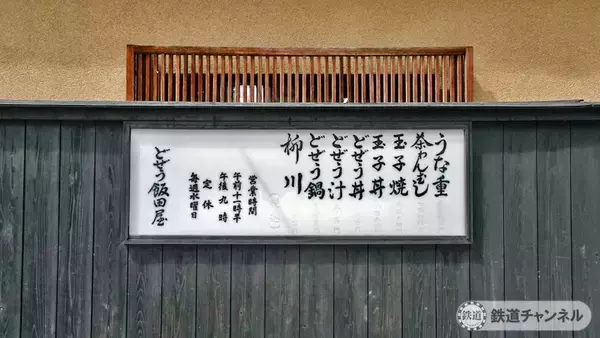 うな重
茶わんむし
玉子焼
玉子丼
どぜう丼
どぜう汁
どぜう鍋
柳川
営業時間
午前十一時半
午後九時
定休
毎週水曜日
どぜう飯田屋
鉄道
鉄道チャンネル